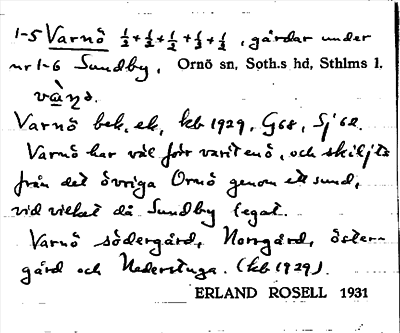 1-5 Varnö ½+½+½+½+½, gårdar under
nr 1-6 Sundby. Ornö sn, Soth.s hd, Sthlms l.
Varnö bek. ek. kb 1929, G68, Sj 62.
Varnö har väl förr varit en ö, och skiljts
från det övriga Ornö genom ett sund,
vid vilket då Sundby legat.
Varnö södergård, Norrgård, öster-
gård och Nederstuga. (kb 1929).
ERLAND ROSELL 1931